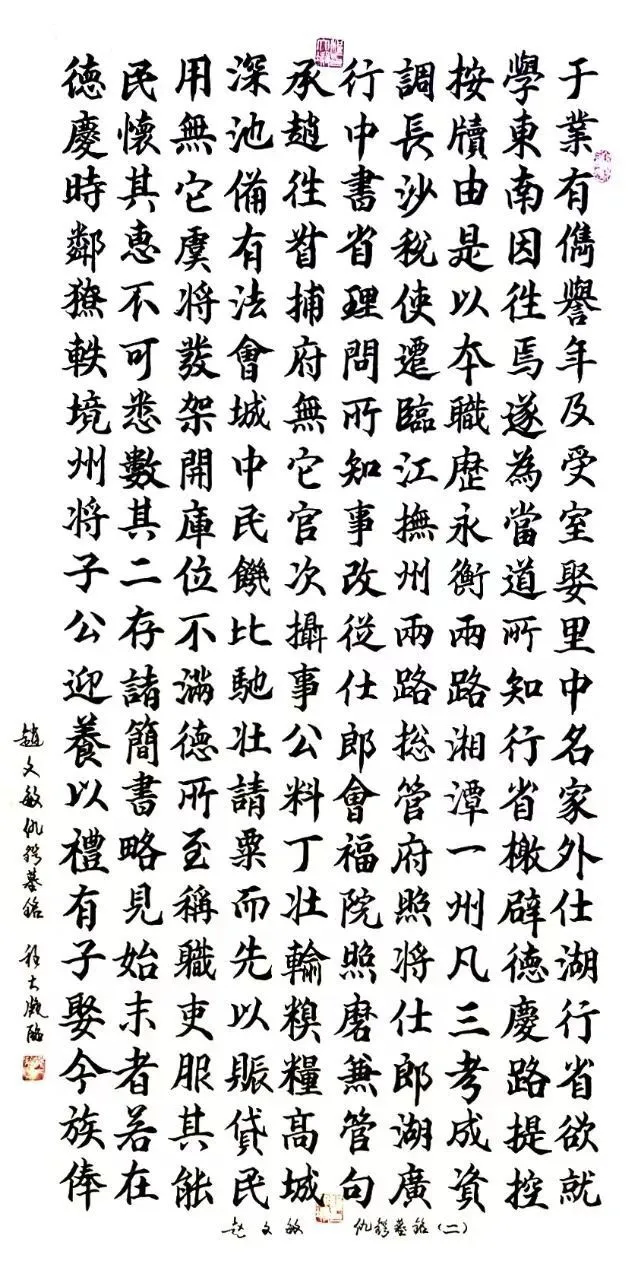 于業有儁譽年及受室娶里中名家外仕湖行省欲就
學東南因徃焉遂為當道所知行省檄辟德慶路提控
按牘由是以本職歷永衡兩路湘潭一州凡三考成資
調長沙稅使遷臨江撫州兩路捴管府照将仕郎湖廣
行中書省理問所知事改從仕郎會福院照磨兼管句
承趙徃督捕府無它官次攝事公料丁壯輸糗糧高城
深池備有法會城中民饑比馳壯請粟而先以賑貸民
用無它虞将發架開庫位不滿德所至稱職吏服其能
民懷其惠不可悉數其二存諸簡書略見始末者若在
德慶時鄰獠軼境州将子公迎養以禮有子娶今族俸
趙文敏仇鍔墓銘 程大儆臨
赵文敏 仇鍔墓銘(二)